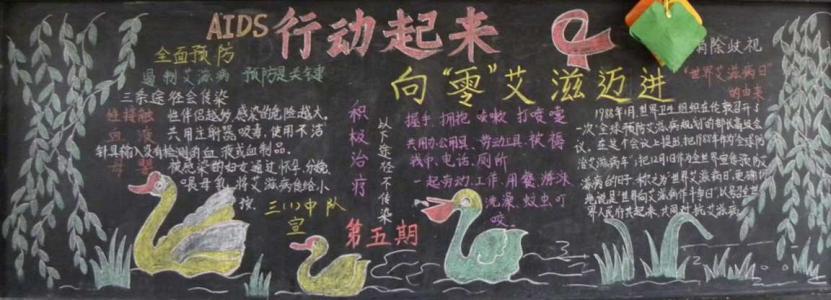 AIDS行动起来
向"零"艾滋迈进
全面预防
遏制艾滋病 预防是关键
三条途径会传染
性接触 性伴侣越多感染的危险越大。
血液 共用注射器吸毒,使用不洁
针具输入没有检测的血液或血制品。
母婴 被感染的妇女通过怀孕、分娩、
喂母乳,将艾滋病传给小
孩。
三(1)中队
宣
积极治疗
以下途径不传染
握手 拥抱 咳嗽 打喷嚏
共用办公用具、劳动工具、被褥
钱币、电话、厕所
一起劳动、工作、用餐、游泳
洗澡、蚊虫叮
咬
第五期
消除歧视
"世界艾滋病日"
的由来
1988年1月,世界卫生组织在伦敦召开了
一次"全球预防艾滋病规划"的部长高级会
议,在这个会议上提出,把1988年作为全球防
治艾滋病年,把12月1日作为全世界宣传预防艾
滋病的日子,称之为"世界艾滋病日",更确切
地说是"世界向艾滋病作斗争日",以号召全世
界人民行动起来,共同对抗艾滋病。